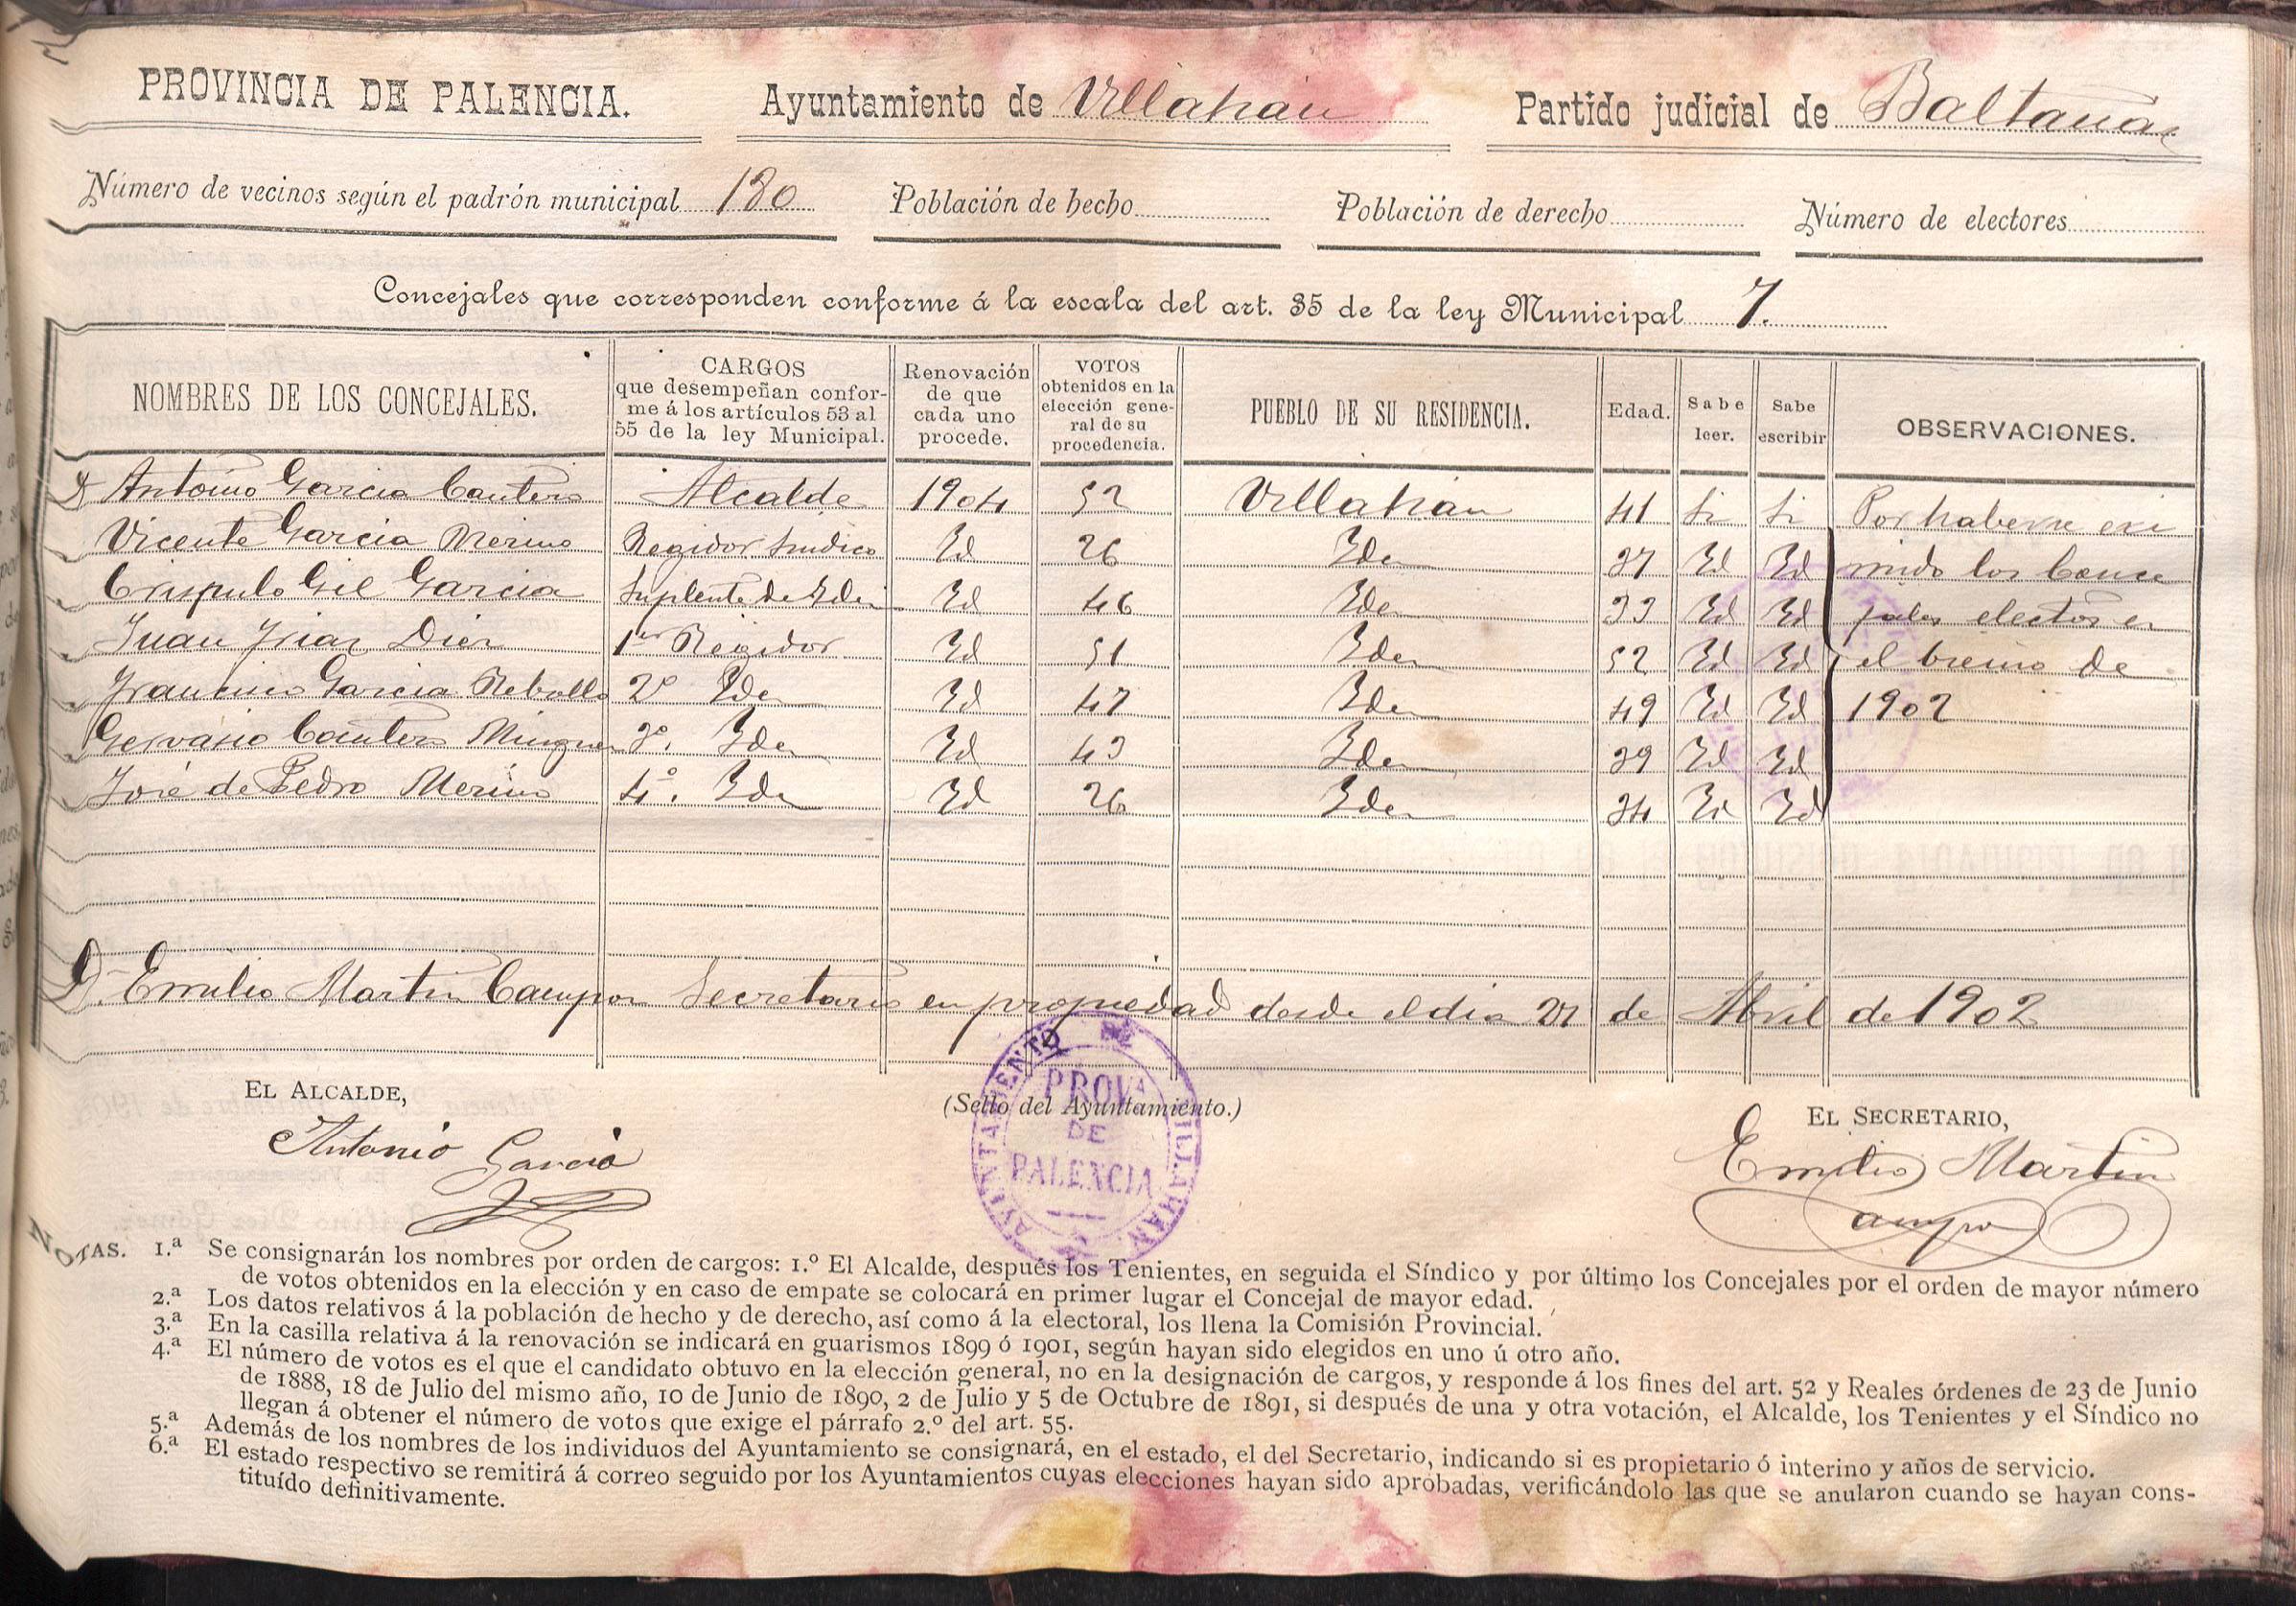 PROVINCIA DE PALENCIA. Ayuntamiento de Villahan Partido judicial de Baltanas
Número de vecinos según el padrón municipal 180 Población de hecho Población de derecho Número de electores
Concejales que corresponden conforme á la escala del art. 35 de la ley Municipal 7.
NOMBRES DE LOS CONCEJALES. CARGOS que desempeñan conforme á los artículos 53 al 55 de la ley Municipal. Renovación de que cada uno procede. VOTOS obtenidos en la elección general de su procedencia. PUEBLO DE SU RESIDENCIA. Edad. Sabe leer. Sabe escribir OBSERVACIONES.
D Antonio Garcia Cantero Alcalde 1904 52 Villahan 41 Si Si Por haberse exi
Vicente Garcia Merino Regidor Sindico Id 26 Iden 37 Id Id mido los Conce
Crispulo Gil Garcia Suplente de Iden Id 46 Iden 33 Id Id jales electos en
Juan Frias Diez 1er Regidor Id 51 Iden 52 Id Id el bienio de
Francisco Garcia Rebollo 2º Iden Id 47 Iden 49 Id Id 1902
Gervasio Cantero Minguez 3º. Iden Id 43 Iden 39 Id Id
José de Pedro Merino 4º. Iden Id 26 Iden 34 Id Id
D. Emilio Martin Campon Secretario en propiedad desde el dia 27 de Abril de 1902
EL ALCALDE,
Antonio Garcia
(Sello del Ayuntamiento.)
AYUNTAMIENTO DE VILLAHAN.
PROVA
DE
PALENCIA
EL SECRETARIO,
Emilio Martin
Campon
NOTAS. 1.ª Se consignarán los nombres por orden de cargos: 1.º El Alcalde, después los Tenientes, en seguida el Síndico y por último los Concejales por el orden de mayor número
de votos obtenidos en la elección y en caso de empate se colocará en primer lugar el Concejal de mayor edad.
2.ª Los datos relativos á la población de hecho y de derecho, así como á la electoral, los llena la Comisión Provincial.
3.ª En la casilla relativa á la renovación se indicará en guarismos 1899 ó 1901, según hayan sido elegidos en uno ú otro año.
4.ª El número de votos es el que el candidato obtuvo en la elección general, no en la designación de cargos, y responde á los fines del art. 52 y Reales órdenes de 23 de Junio
de 1888, 18 de Julio del mismo año, 10 de Junio de 1890, 2 de Julio y 5 de Octubre de 1891, si después de una y otra votación, el Alcalde, los Tenientes y el Síndico no
llegan á obtener el número de votos que exige el párrafo 2.º del art. 55.
5.ª Además de los nombres de los individuos del Ayuntamiento se consignará, en el estado, el del Secretario, indicando si es propietario ó interino y años de servicio.
6.ª El estado respectivo se remitirá á correo seguido por los Ayuntamientos cuyas elecciones hayan sido aprobadas, verificándolo las que se anularon cuando se hayan cons-
tituído definitivamente.